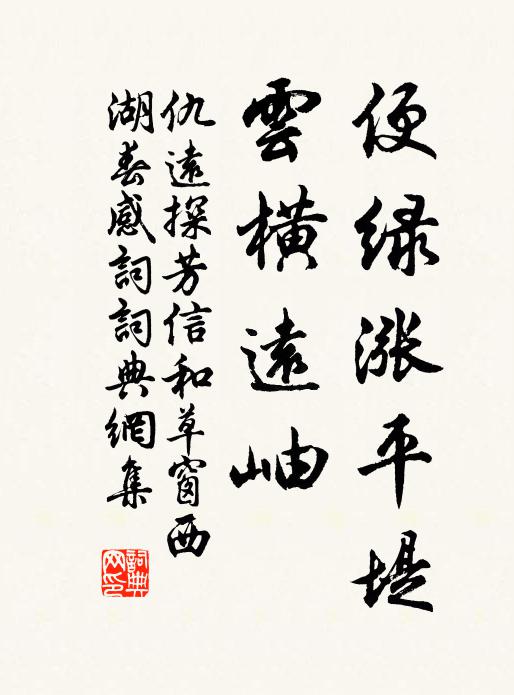 便绿涨平堤
雲橫遠岫
仇遠探芳信和草窗西
湖春感詞詞典網集
詞典
网印